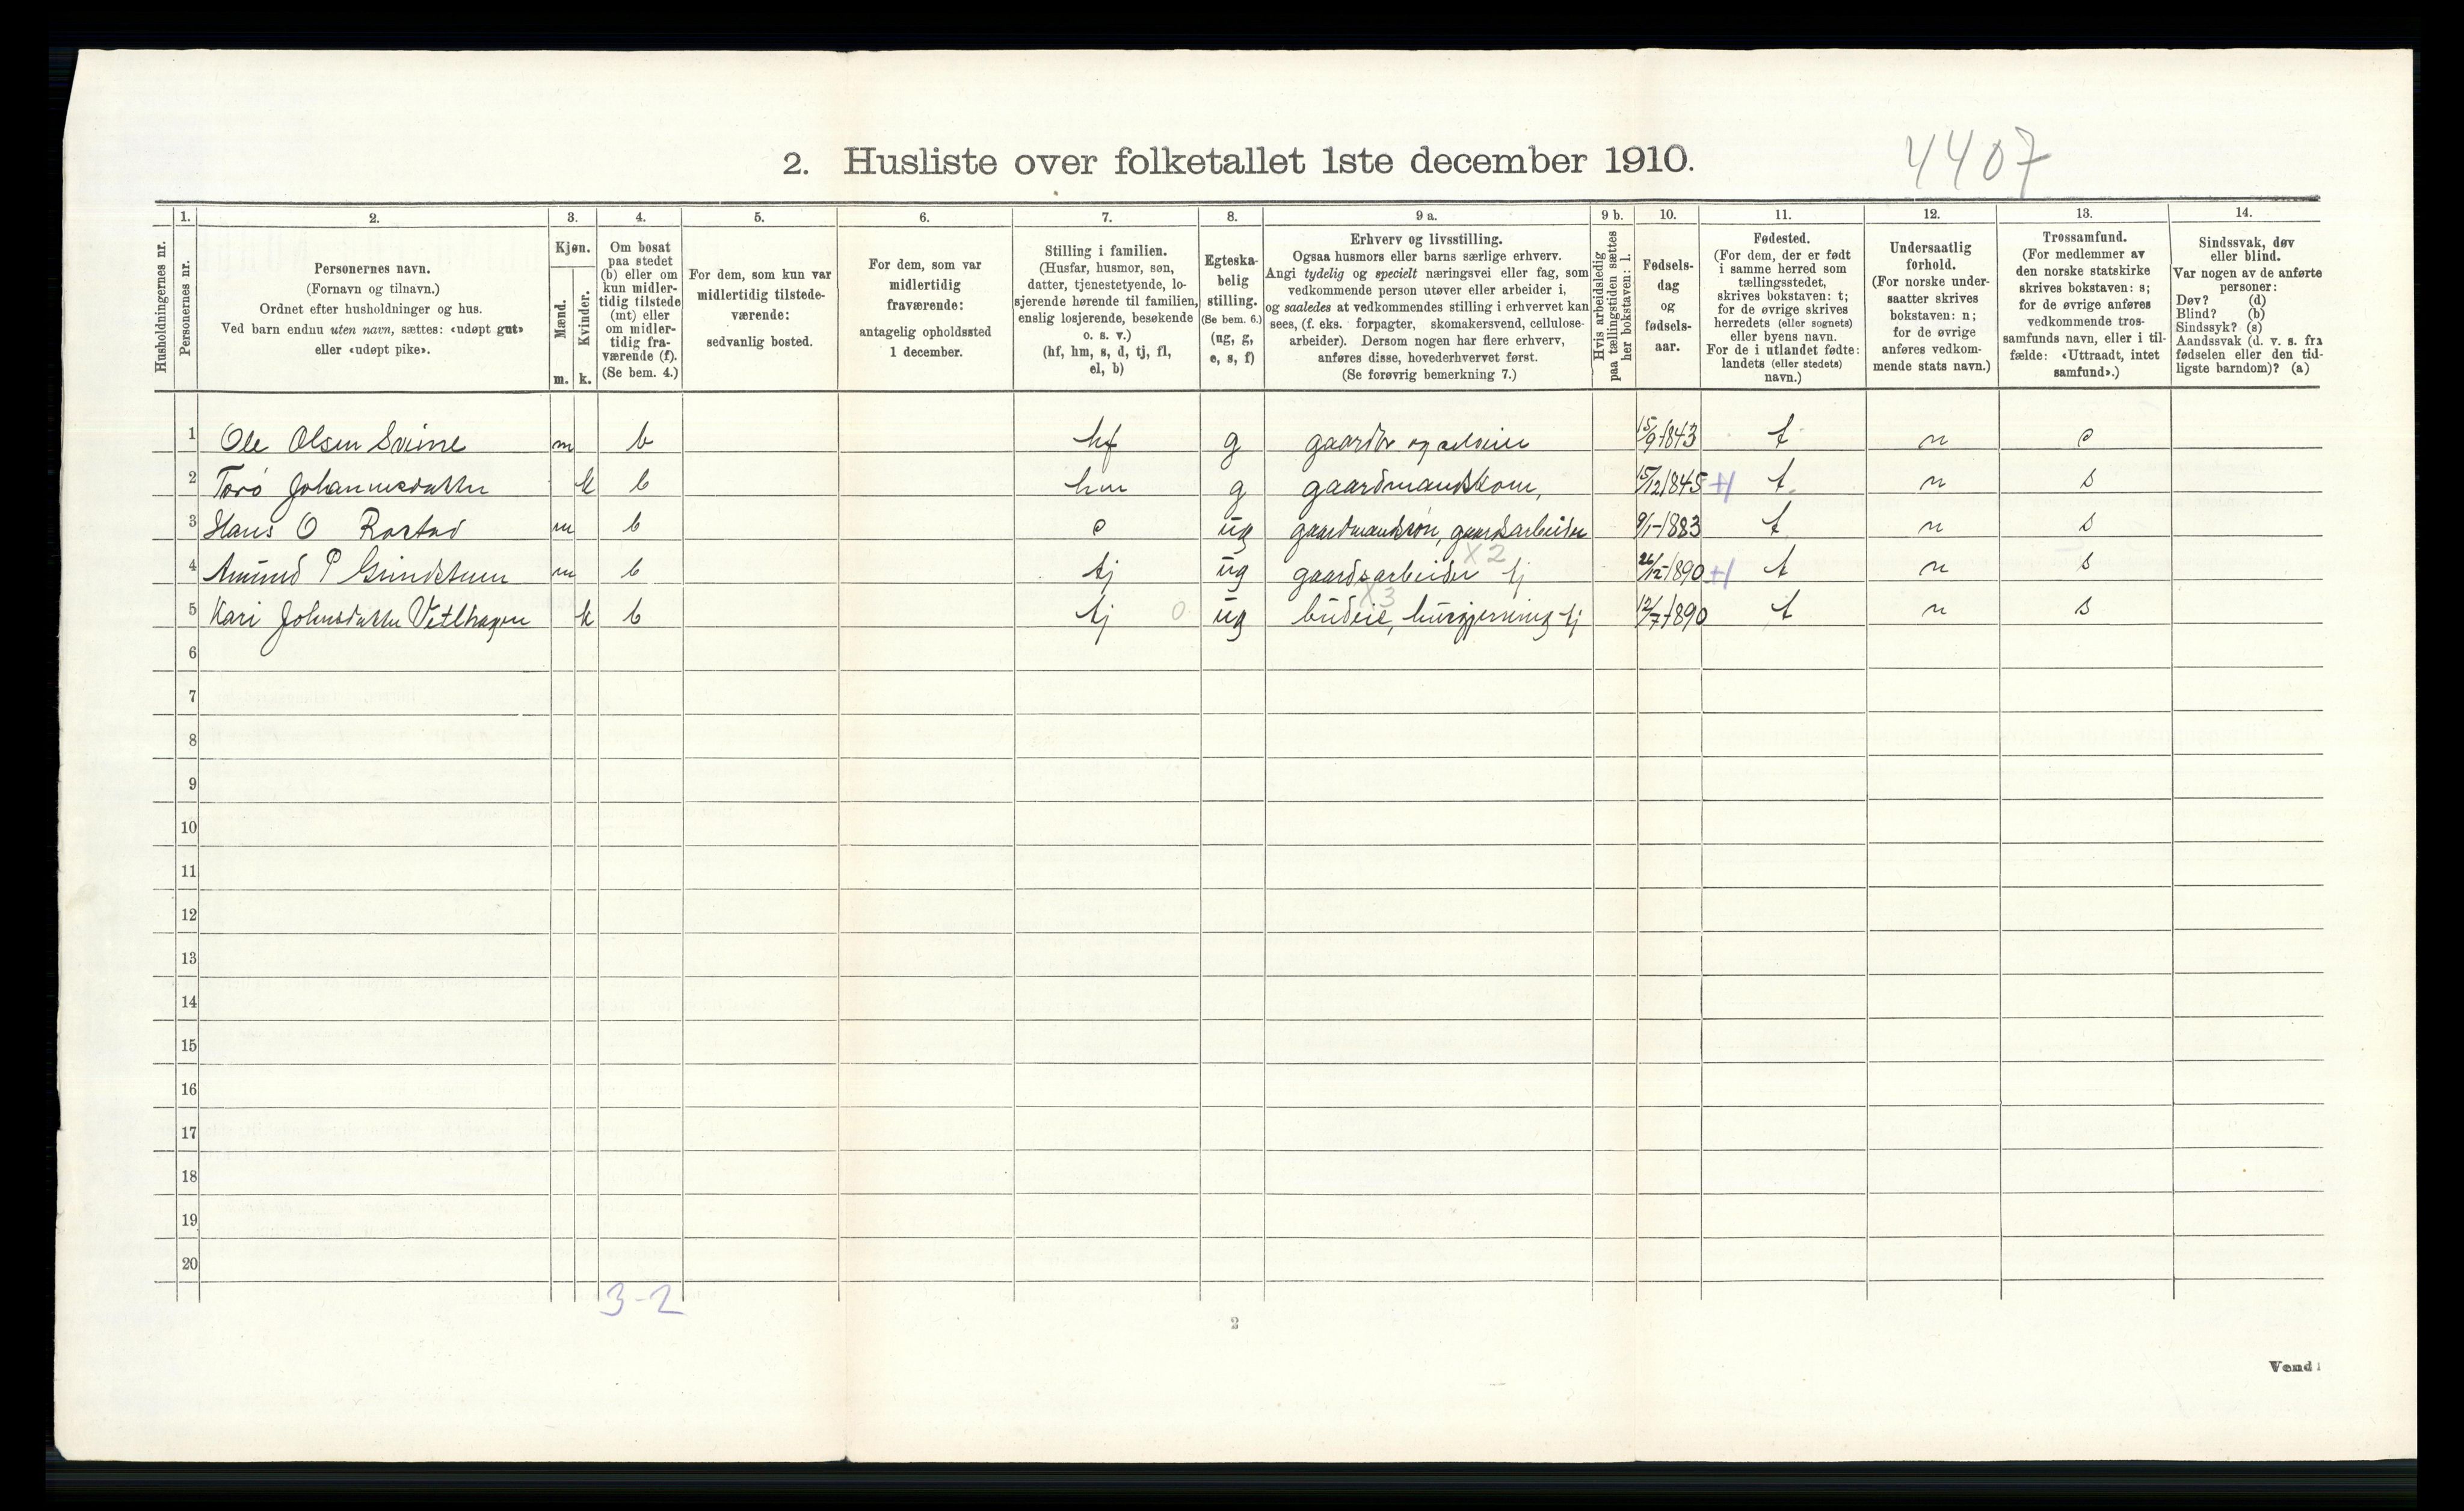 2. Husliste over folketallet 1ste december 1910.
4407
Husholdningernes nr.
1.
Personernes nr.
2.
Personernes navn.
(Fornavn og tilnavn.)
Ordnet efter husholdninger og hus.
Ved barn endnu uten navn, sættes: «udøpt gut»
eller «udøpt pike».
3.
Kjøn.
Mænd.
Kvinder.
m. k.
4.
Om bosat
paa stedet
(b) eller om
kun midler-
tidig tilstede
(mt) eller
om midler-
tidig fra-
værende (f).
(Se bem. 4.)
5.
For dem, som kun var
midlertidig tilstede-
værende:
sedvanlig bosted.
6.
For dem, som var
midlertidig
fraværende:
antagelig opholdssted
1 december.
7.
Stilling i familien.
(Husfar, husmor, søn,
datter, tjenestetyende, lo-
sjerende hørende til familien,
enslig losjerende, besøkende
o. s. v.)
(hf, hm, s, d, tj, fl,
el, b)
8.
Egteska-
belig
stilling.
(Se bem. 6.)
(ug, g,
e, s, f)
9 a.
Erhverv og livsstilling.
Ogsaa husmors eller barns særlige erhverv.
Angi tydelig og specielt næringsvei eller fag, som
vedkommende person utøver eller arbeider i,
og saaledes at vedkommendes stilling i erhvervet kan
sees, (f. eks. forpagter, skomakersvend, cellulose-
arbeider). Dersom nogen har flere erhverv,
anføres disse, hovederhvervet først.
(Se forøvrig bemerkning 7.)
9 b.
Hvis arbeidsledig
paa tællingstiden sættes
her bokstaven: l.
10.
Fødsels-
dag
og
fødsels-
aar.
11.
Fødested.
(For dem, der er født
i samme herred som
tællingsstedet,
skrives bokstaven: t;
for de øvrige skrives
herredets (eller sognets)
eller byens navn.
For de i utlandet fødte:
landets (eller stedets)
navn.)
12.
Undersaatlig
forhold.
(For norske under-
saatter skrives
bokstaven: n;
for de øvrige
anføres vedkom-
mende stats navn.)
13.
Trossamfund.
(For medlemmer av
den norske statskirke
skrives bokstaven: s;
for de øvrige anføres
vedkommende tros-
samfunds navn, eller i til-
fælde: «Uttraadt, intet
samfund».)
14.
Sindssvak, døv
eller blind.
Var nogen av de anførte
personer:
Døv? (d)
Blind? (b)
Sindssyk? (s)
Aandssvak (d. v. s. fra
fødselen eller den tid-
ligste barndom)? (a)
1 Ole Olsen m b hf g gaardbr og selveier 15/9-1843 t n s
2 Johannesdatter k b hm g gaardmandskone, 15/12 1845 t n s
3 Hans O Rostad m b s ug gaardmandssøn, gaardsarbeider 9/1-1883 t n s
X2
4 Amund P m b tj ug gaardsarbeider tj 26/12-1890 t n s
X3
5 Kari Johnsdatter k b tj 0 ug budeie, husgjerning tj 12/7-1890 t n s
6
7
8
9
10
11
12
13
14
15
16
17
18
19
20
3-2
2
Vend!